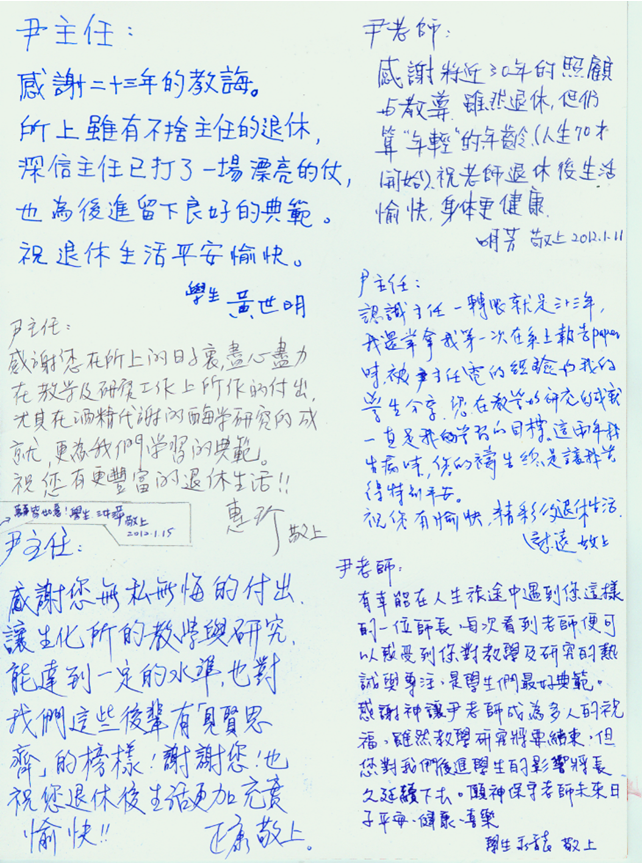 尹主任：
感謝二十三年的教誨。
所上雖有不捨主任的退休，
深信主任已打了一場漂亮的仗，
也為後進留下良好的典範。
祝退休生活平安愉快。
學生 黃世明
尹主任：
感謝您在所上的日子裏，盡心盡力
在教學及研究工作上所作的付出，
尤其在酒精代謝的酶學研究的成
就，更為我們學習的典範。
祝您有更豐富的退休生活!!
惠珍 敬上
學生 敬上
2012.1.15
尹主任：
感謝您無私無悔的付出，
讓生化所的教學與研究，
能達到一定的水準，也對
我們這些後輩有「見賢思
齊」的榜樣！謝謝您！也
祝您退休後生活更加充實
愉快!!
正康 敬上。
尹老師：
感謝將近30年的照顧
與教導，雖然退休，但仍
算"年輕"的年齡，(人生70才
開始)，祝老師退休後生活
愉快，身体更健康.
明芳 敬上 2012.1.11
尹主任：
認識主任一轉眼就是廿三年，
我還記得我第一次在系上報告paper
時被尹主任電的經驗也和我的
學生分享，您在教學的研究的成就
一直是我的學習的目標。這兩年我
生病時，你的禱告總是讓我覺
得特別平安。
祝您有愉快、精彩的退休生活.
敬上
尹老師：
有幸能在人生旅途中遇到您這樣
的一位師長，每次看到老師，便可
以感受到您對教學及研究的熱
誠與專注，是學生們最好典範。
感謝神讓尹老師成為多人的祝
福，雖然教學研究將要結束，但
您對我們後進學生的影響將長
久延續下去。願神保守老師未來日
子平安、健康、喜樂
學生 敬上